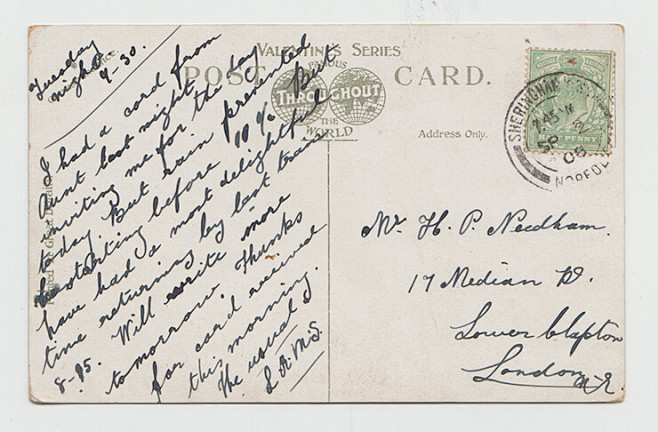 Tuesday
night.
9-30.
I had a card from
Aunt last night
inviting me for the day
today. But rain prevented
starting before 10%. But
have had a most delightful
time returning by last train
8-95. Will write more
tomorrow. Thanks
for card received
this morning.
The usual
L.A.M.S.
VALENTINE'S SERIES
POST CARD.
FAMOUS
THROUGHOUT
THE
WORLD
Address Only.
SHERINGHAM
7.45
SP
06
NORFOLK
PENNY
Mr. H. P. Needham.
17 Median Rd.
Lower Clapton
London
N.E.